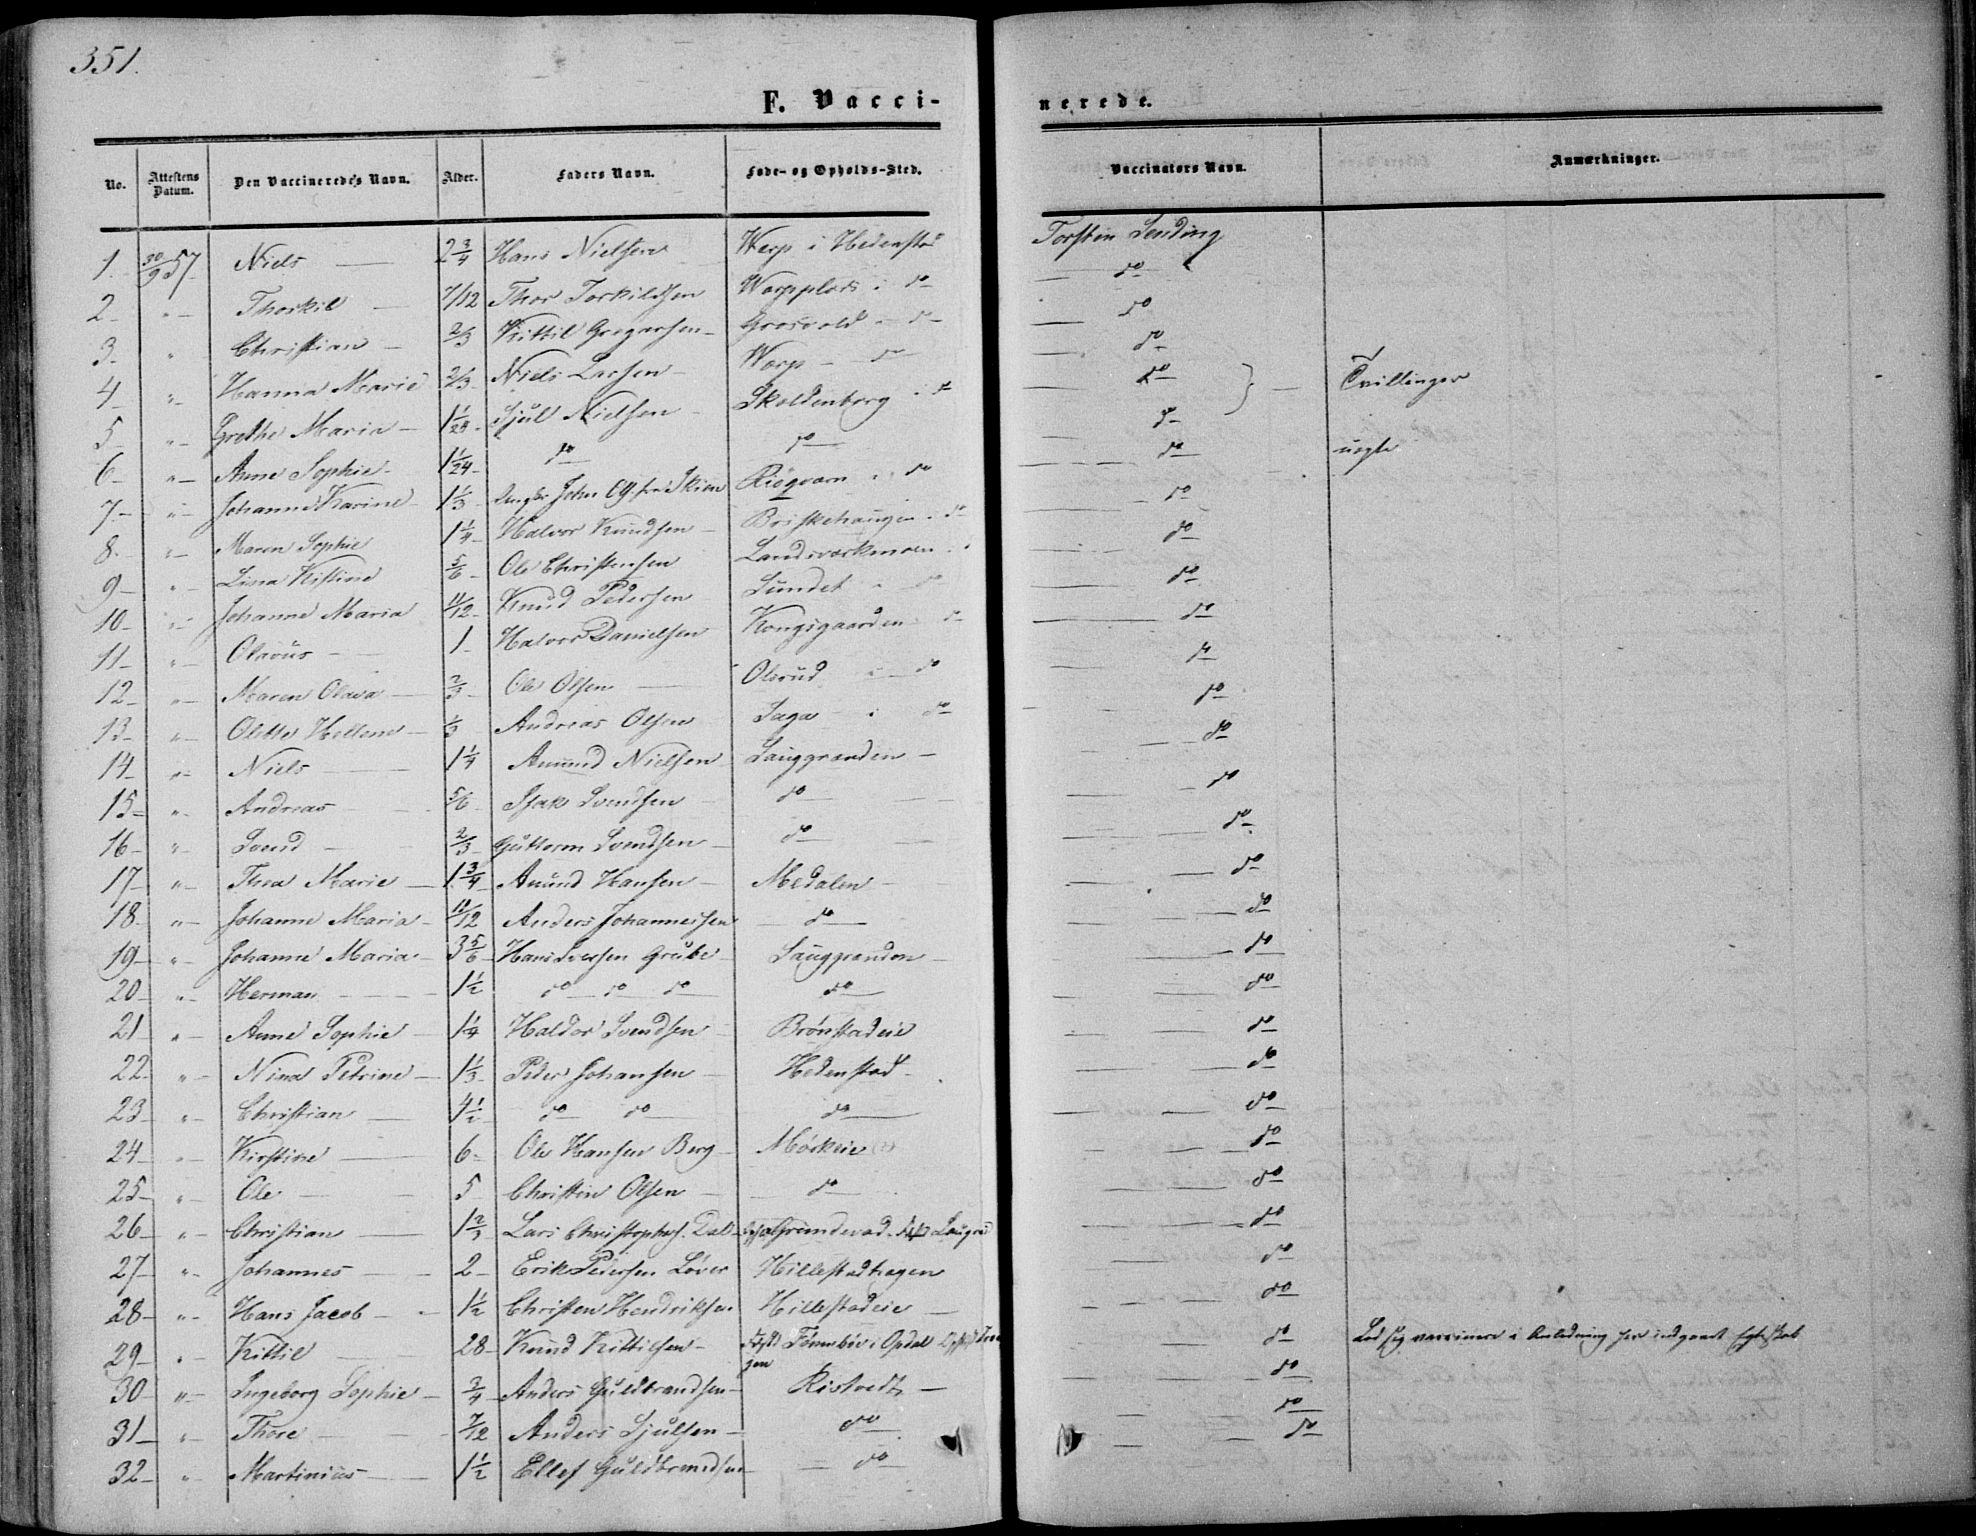 351.
F. Vacci-
nerede.
No. Attestens Datum. Den Vaccineredes Navn. Alder. Faders Navn. Føde- og Opholds-Sted. Vaccinators Navn. Anmærkninger.
1. 30/9 57 Niels — 2 3/4 Hans Nielsen Werp i Hedenstad Torsten Sending
2 - " - Thorkil — 7/12 Thor Torkildsen Worpplads i do — do
3 - " Christian — 2/3 Kittil Gregarsen - Grosvold - do — do
4 - " - Hanna Marie 2/3 - Niels Larsen - Worp - do — do
5 - " - Grethe Maria - 1 1/24 - Sjul Nielsen - Skoldenborg i do — do } — Tvillinger
6 - " - Anne Sophie - 1 1/24 - do do — do
7 - " - Johanne Karine 1 1/3 - John fra Skien Riisqvarn i do — do uegte
8 - " - Maren Sophie 1 1/4 - Halvor Knudsen - Briskehaugen - do — do
9 - " - Lina Kistine 5/6 - Ole Christensen Landsværksmoen — do
10 - " - Johanne Maria 11/12 - Knud Pedersen Sundet " do — do
11 - " - Olavus — 1 - Halvor Danielsen Kongsgaarden do — do
12 - " - Maren Olava - 2/3 - Ole Olsen — Olsrud i do — do
13 - " - Olette Hellene - 1/3 Andreas Olsen Saga - i do — do
14 - " - Niels — 1 1/4 Amund Nielsen Lauggranden - — do
15 - " - Andreas — 5/6 - Isak Svendsen do — — do
16 - " - Svend — 2/3 - Guttorm Svendsen - do — — do
17 - " - Thea Marie — 1 3/4 - Anund Hansen - Medalen - — do
18 " - Johanne Maria - 10/12 Anders Johannessen — do — — do
19 - " - Johanne Maria - 3 5/6 - Hans Iversen Grube - Lauggranden - — do
20 - " - Herman — 1 1/2 do — do do do — do
21 " - Anne Sophie — 1 1/4 Haldor Svendsen Brønstadeie — do
22 - " - Nina Petrine — 1 1/3 - Peder Johansen Hedenstad - — do
23 - " - Christian — 4 1/2 - do do do — do
24 - " - Kirstine — 6 - Ole Hansen Berg Mørkeie — do
25 - " - Ole — 5 Christen Olsen - do — do
26 - " - Christian — 1 2/3 - Lars Christophs. Dal — do
27 - " - Johannes — 2 - Erik Pedersen Løver Hillestadhagen — do
28 - " - Hans Jacob - 1 1/2 - Christen Hendriksen Hillestadeie — — do
29 - " - Kittil — 28 - Knud Kittilsen - i Opdal — do Lod sig vaccinere i Anledning indgaaet Egteskab
30 - " - Ingeborg Sophie - 3/4 - Anders Guldbrandsen - Ristvedt - — do
31 - " - Thore — 7/12 Anders Sjulsen - do — do
32 - " - Martinius — 1 1/2 Ellef Guldbrandsen — do — do